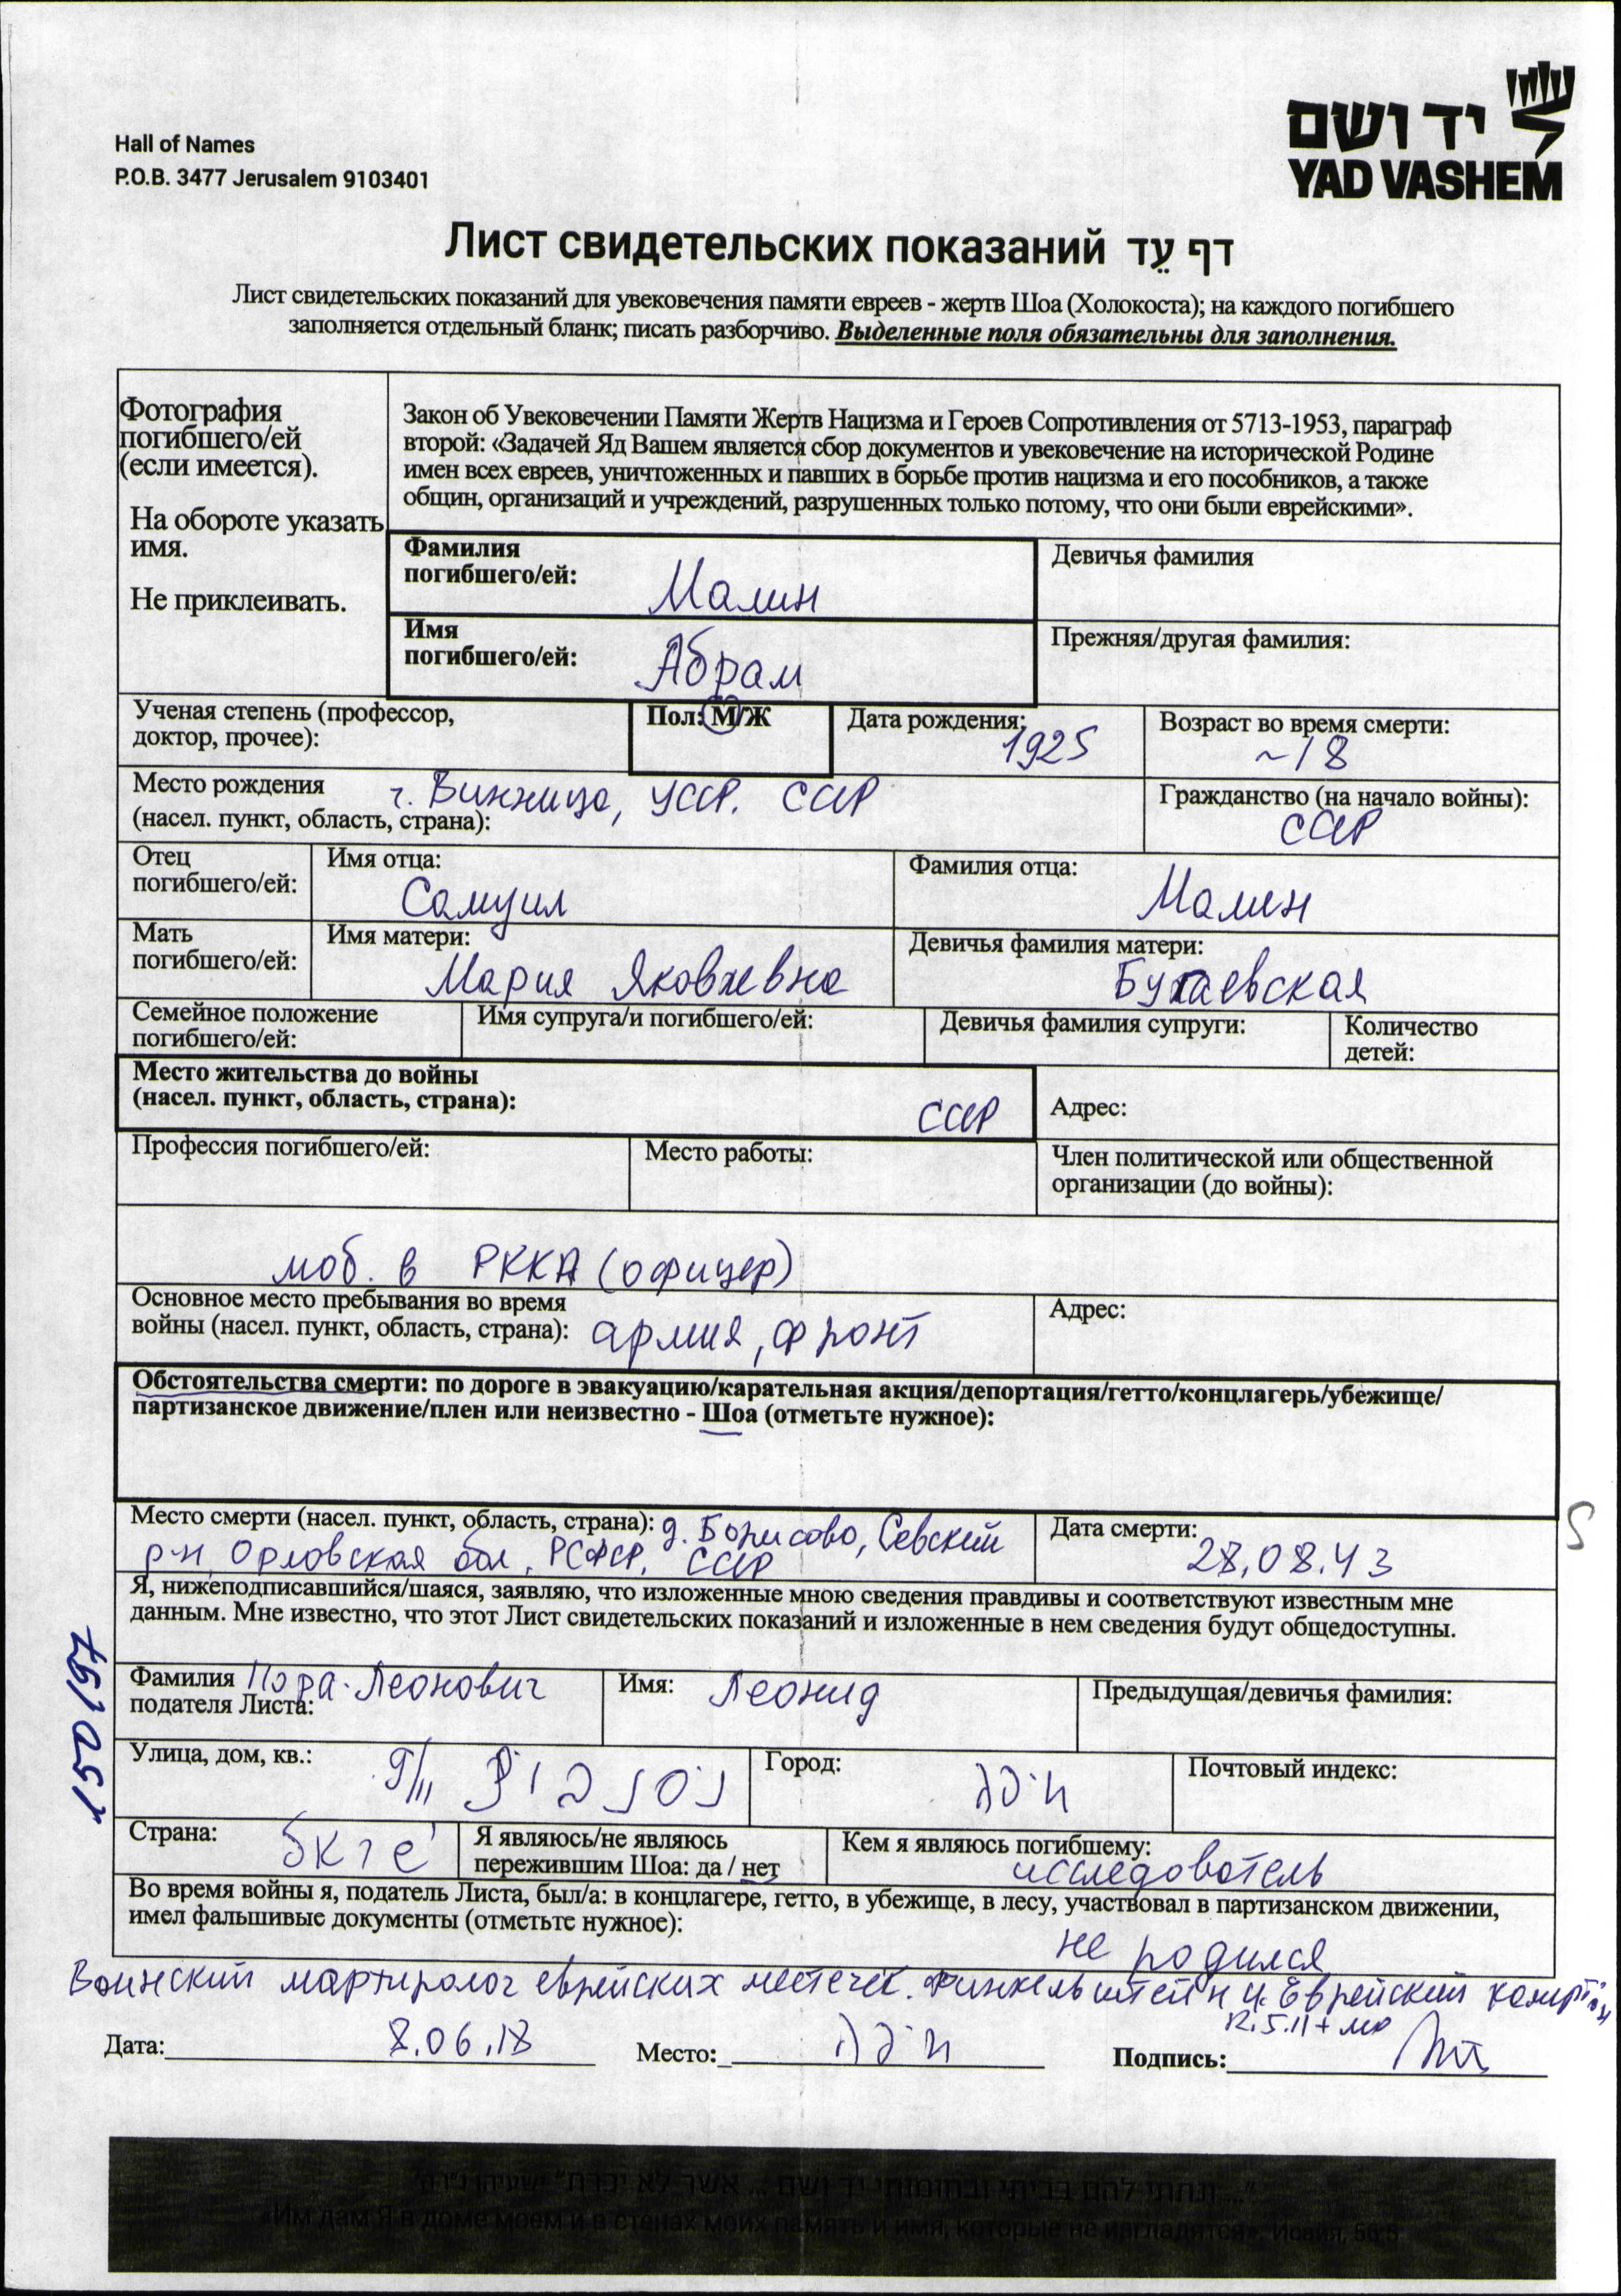 Hall of Names
P.O.B. 3477 Jerusalem 9103401
יד ושם
YAD VASHEM
Лист свидетельских показаний דף עֵד
Лист свидетельских показаний для увековечения памяти евреев - жертв Шоа (Холокоста); на каждого погибшего
заполняется отдельный бланк; писать разборчиво. Выделенные поля обязательны для заполнения.
Фотография
погибшего/ей
(если имеется).
На обороте указать
имя.
Не приклеивать.
Закон об Увековечении Памяти Жертв Нацизма и Героев Сопротивления от 5713-1953, параграф
второй: «Задачей Яд Вашем является сбор документов и увековечение на исторической Родине
имен всех евреев, уничтоженных и павших в борьбе против нацизма и его пособников, а также
общин, организаций и учреждений, разрушенных только потому, что они были еврейскими».
Фамилия
погибшего/ей: Малин
Девичья фамилия
Имя
погибшего/ей: Абрам
Прежняя/другая фамилия:
Ученая степень (профессор,
доктор, прочее):
Пол: М/Ж
Дата рождения: 1925
Возраст во время смерти:
~18
Место рождения г. Винница, УССР. СССР
(насел. пункт, область, страна):
Гражданство (на начало войны):
СССР
Отец
погибшего/ей:
Имя отца:
Самуил
Фамилия отца:
Малин
Мать
погибшего/ей:
Имя матери:
Мария Яковлевна
Девичья фамилия матери:
Семейное положение
погибшего/ей:
Имя супруга/и погибшего/ей:
Девичья фамилия супруги:
Количество
детей:
Место жительства до войны
(насел. пункт, область, страна): СССР
Адрес:
Профессия погибшего/ей:
Место работы:
Член политической или общественной
организации (до войны):
моб. в РККА (офицер)
Основное место пребывания во время
войны (насел. пункт, область, страна): армия, фронт
Адрес:
Обстоятельства смерти: по дороге в эвакуацию/карательная акция/депортация/гетто/концлагерь/убежище/
партизанское движение/плен или неизвестно - Шоа (отметьте нужное):
Место смерти (насел. пункт, область, страна): д. Борисово, Севский
р-н, Орловская обл, РСФСР, СССР
Дата смерти:
28.08.43
Я, нижеподписавшийся/шаяся, заявляю, что изложенные мною сведения правдивы и соответствуют известным мне
данным. Мне известно, что этот Лист свидетельских показаний и изложенные в нем сведения будут общедоступны.
Фамилия Пора-Леонович
подателя Листа:
Имя: Леонид
Предыдущая/девичья фамилия:
Улица, дом, кв.:
Город:
Почтовый индекс:
Страна:
Я являюсь/не являюсь
пережившим Шоа: да / нет
Кем я являюсь погибшему:
исследователь
Во время войны я, податель Листа, был/а: в концлагере, гетто, в убежище, в лесу, участвовал в партизанском движении,
имел фальшивые документы (отметьте нужное):
не родился
Воинский мартиролог еврейских местечек. Финкельштейн И. Еврейский
Дата: 8.06.18
Место:
Подпись:
"... ונתתי להם בביתי ובחומותי יד ושם ... אשר לא יכרת" ישעיהו נ"ו ה'
«Им дам Я в доме моем и в стенах моих память и имя, которые не изгладятся», Исайя, 56:5